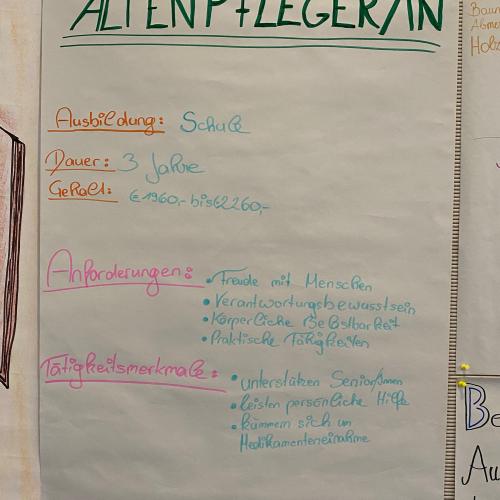 ALTENPFLEGER/IN
Ausbildung: Schule
Dauer: 3 Jahre
Gehalt: € 1960,- bis € 2260,-
Anforderungen:
• Freude mit Menschen
• Verantwortungsbewusstsein
• Körperliche Belastbarkeit
• Praktische Fähigkeiten
Tätigkeitsmerkmale:
• unterstützen SeniorInnen
• leisten persönliche Hilfe
• kümmern sich um
Medikamenteneinahme
Baum
Holz
Be
Au